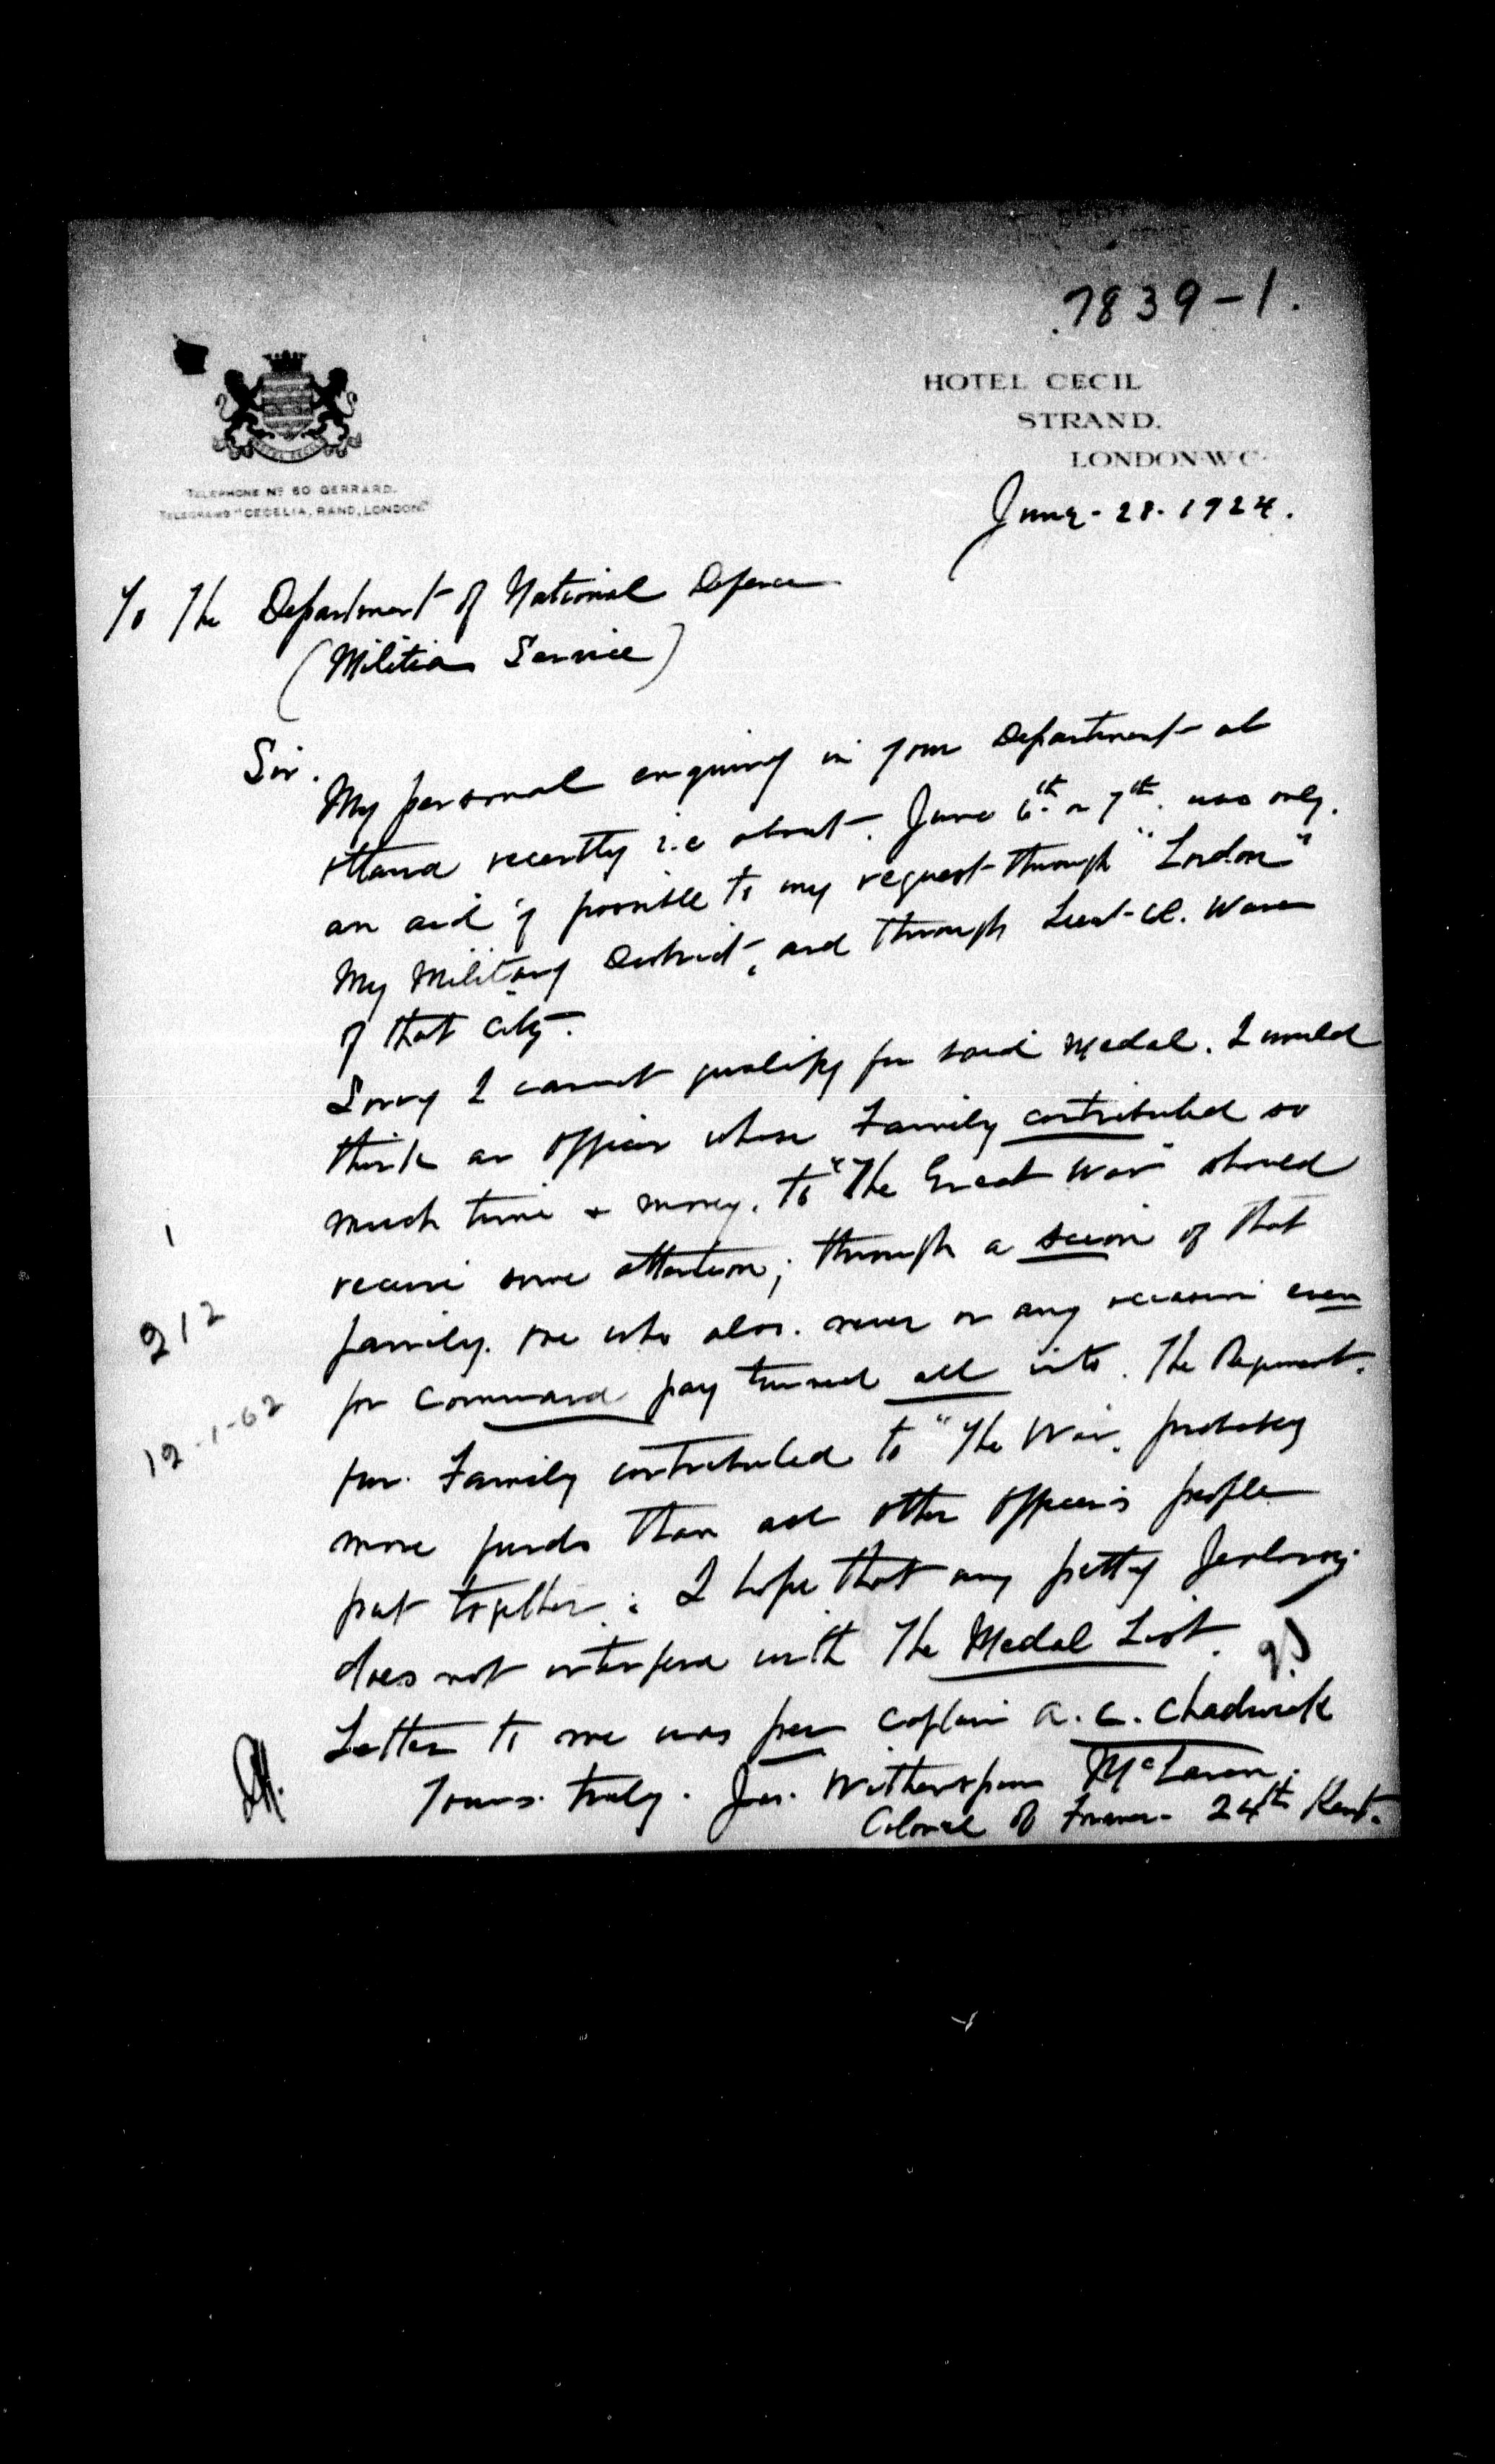 7839-1.
HOTEL CECIL
STRAND.
LONDON W C
TELEPHONE Nº 60 GERRARD.
TELEGRAMS "CECELIA, RAND, LONDON"
June - 28. 1924.
To The Department of National Defence
(Militia Service)
Sir.
My personal enquiry in your Department at
Ottawa recently i.e about. June 6th. or 7th. was only.
an aid if possible to my request through "London"
My Military District, and through Lieut-Col.
of that city.
Sorry I cannot qualify for said Medal. I would
think an Officer whose Family contributed so
much time & money. to "The Great War" should
receive some attention; through a scion of that
family. One who also. never on any occasion even
for command pay turned all into. The Regiment.
Our Family contributed to "The War. probably
more funds than all other Officers people
put together. I hope that any petty Jealousy.
does not interfere with The Medal List.
Letter to me was per Captain A. C. Chadwick
Yours. truly. Jas. Witherspoon McLaren.
Colonel of Former - 24th Kent.
1
212
12-1-62